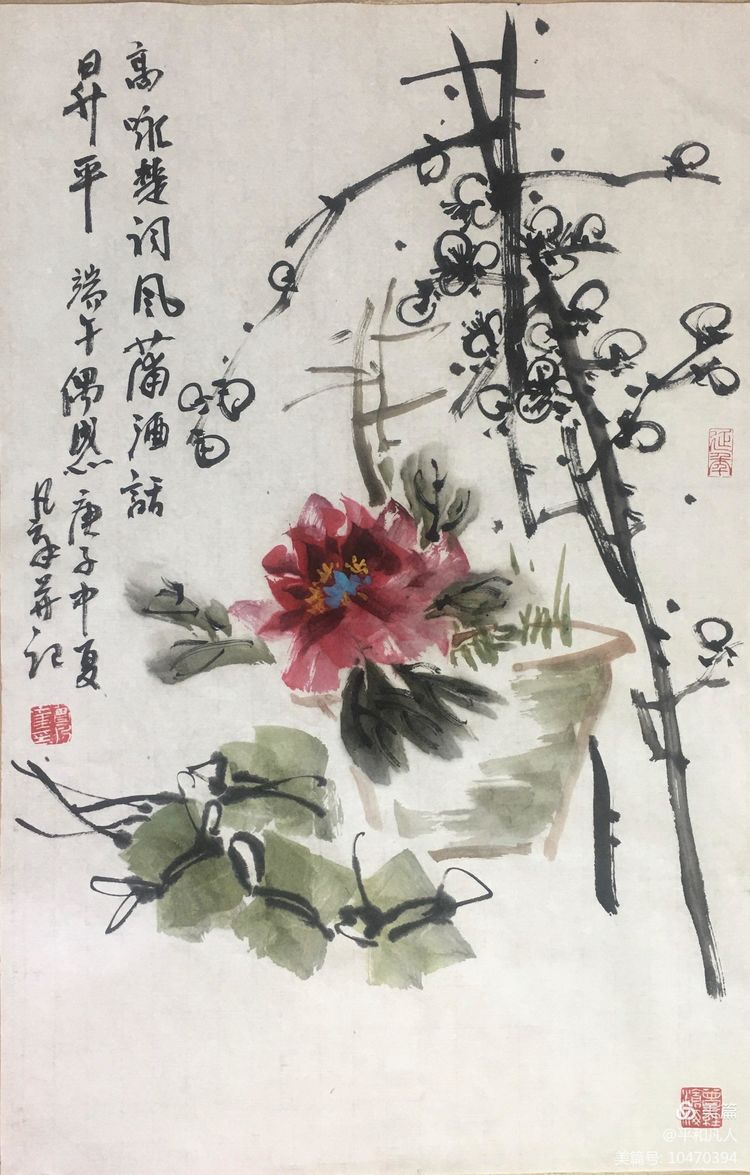 高咏楚词风蒲酒話
日昇平 端午偶感庚子中夏
凡夫并记
延年
@平和凡人
美篇号: 10470394